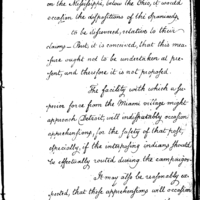 on the Mississippi, below the Ohio, it would
occasion the dispositions of the Spaniards,
to be discovered, relative to their
claims — But it is conceived, that this mea-
sure ought not to be undertaken at pre-
sent, and therefore it is not proposed.
The facility with which a su-
perior force from the Miami village might
approach Detroit, will indisputably occasion
apprehensions, for the safety of that post,
especially, if the interposing indians should
be effectually routed during the campaign.
It may also be reasonably ex-
pected, that these apprehensions will occasion